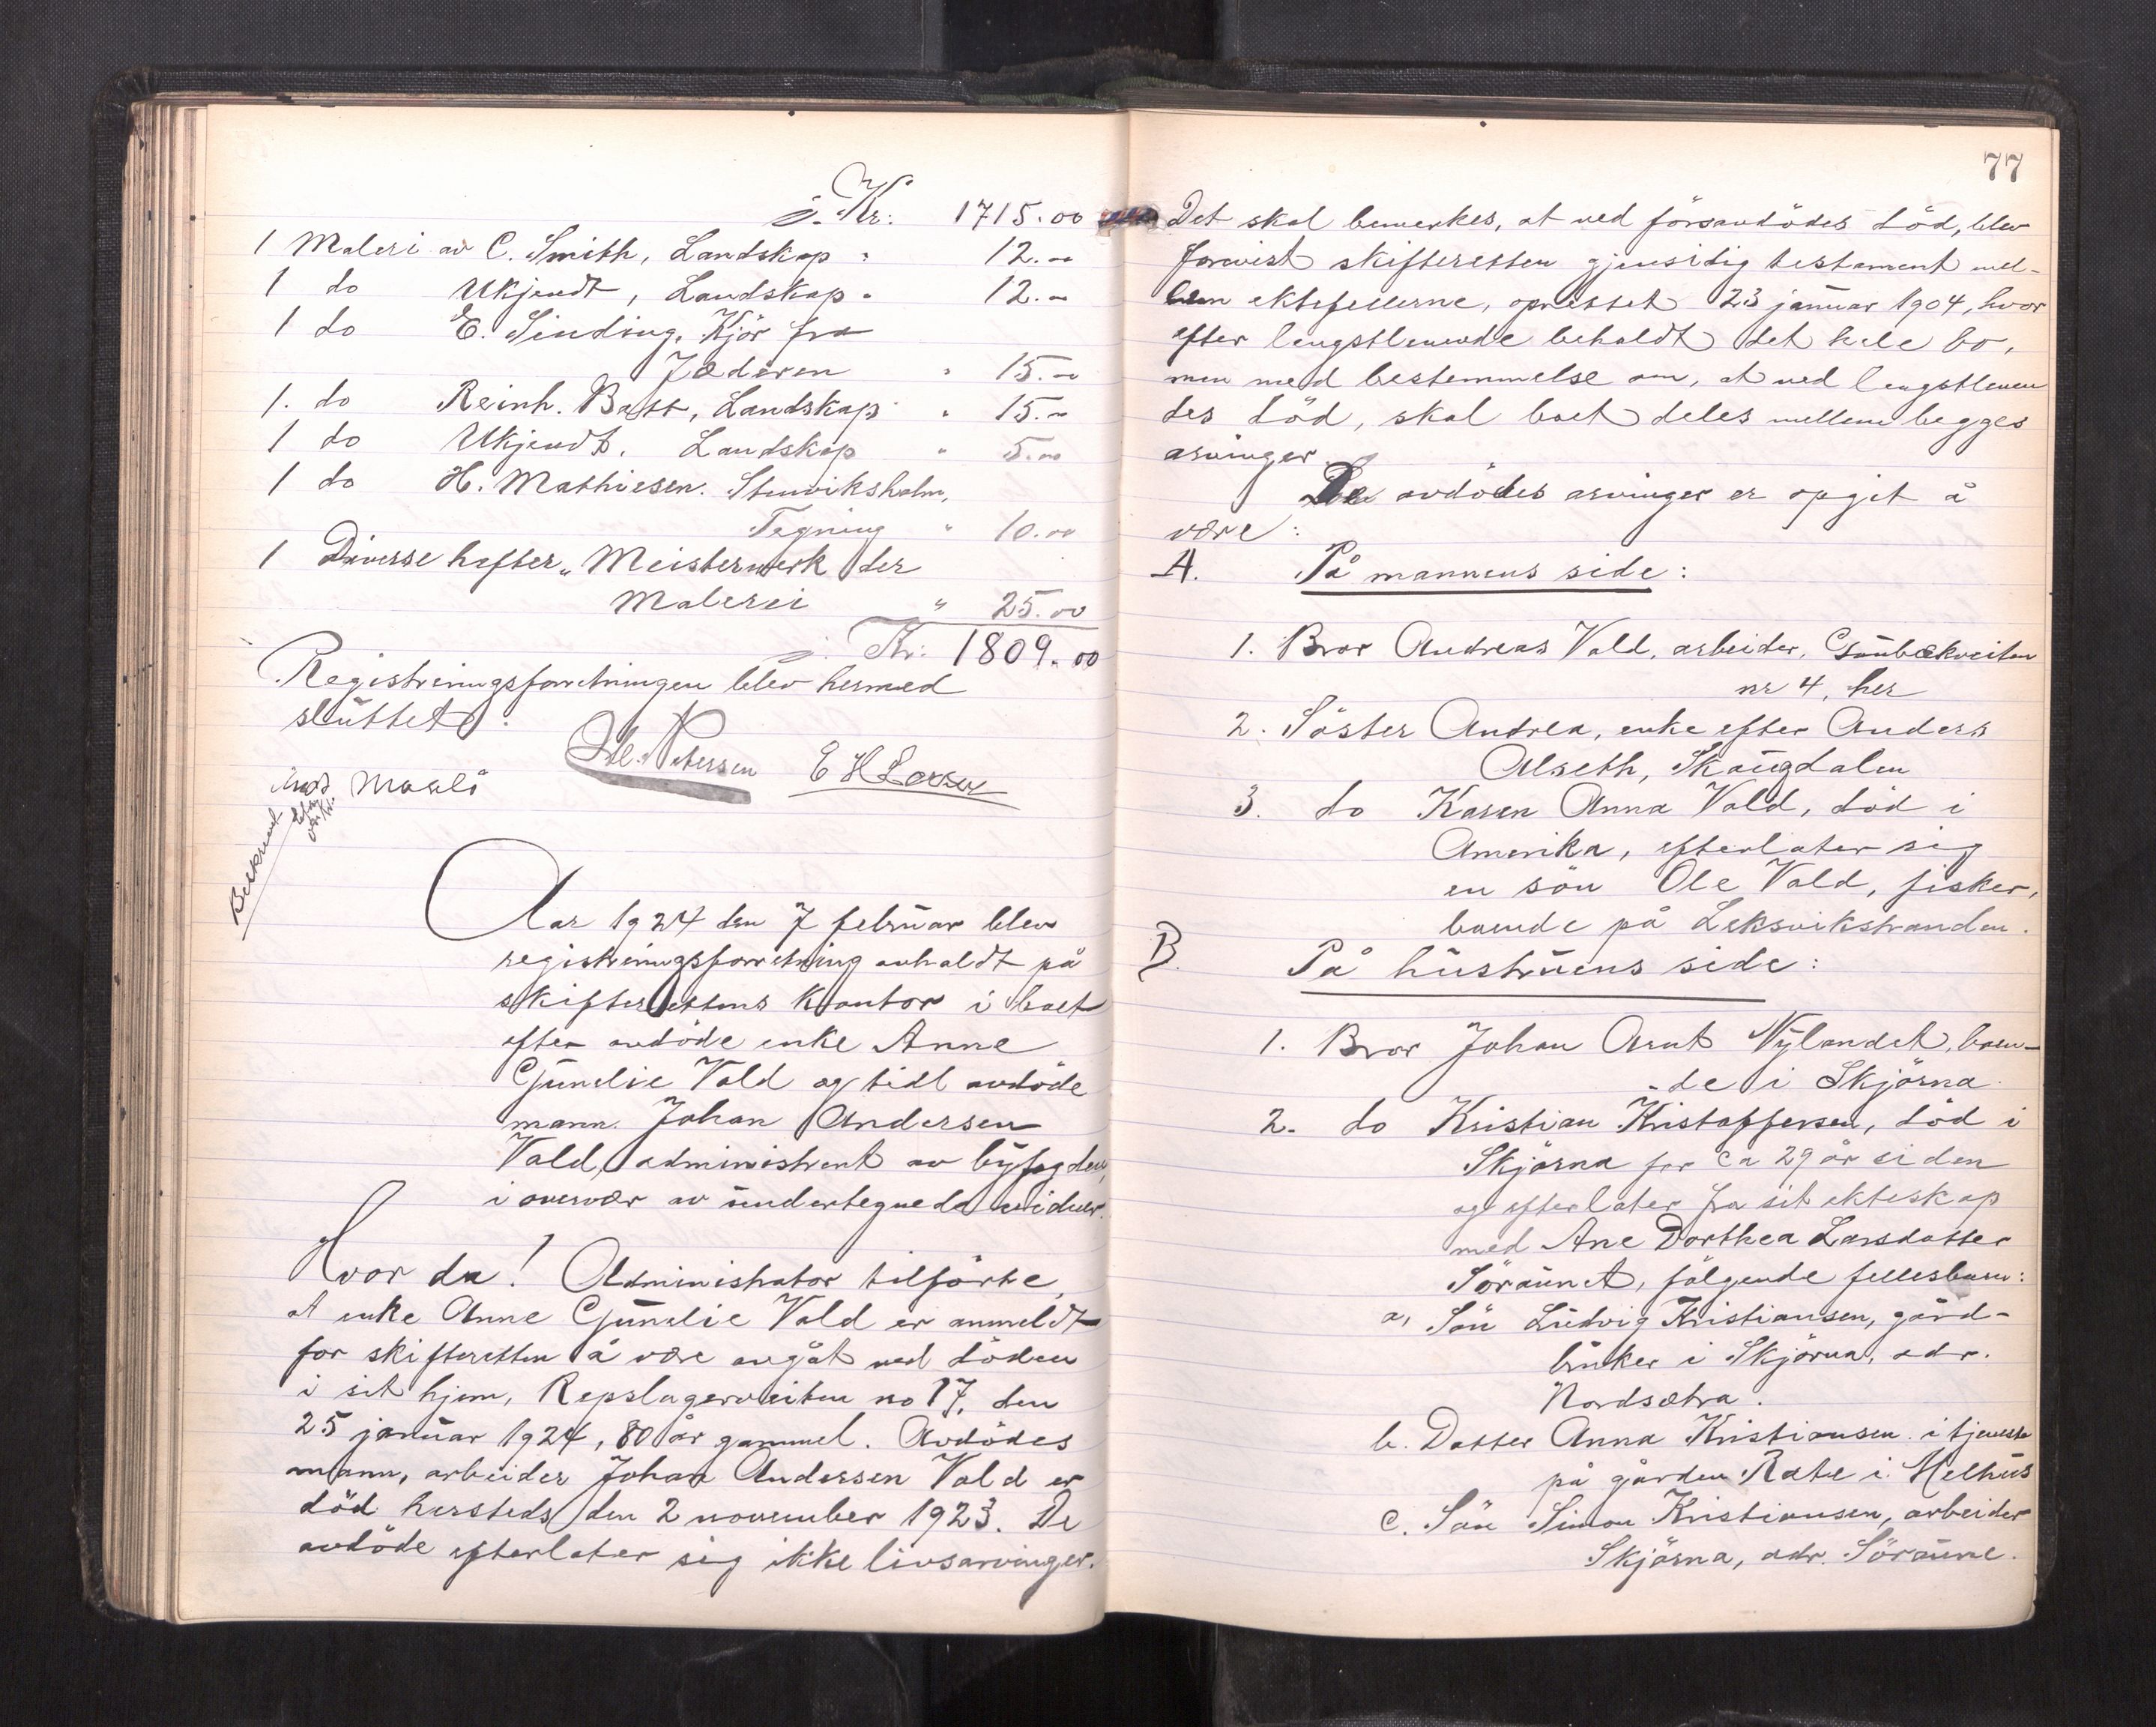 Kr: 1715.00
1 Maleri av C. Smith, Landskap " 12.00
1 do Ukjendt, Landskap " 12.00
1 do E. Sinding, Kjör fra
Jæderen " 15.00
1. do Reinh. Batt, Landskap " 15.00
1 do Ukjendt. Landskap " 5.00
1 do H. Mathiesen. Stenviksholm,
Tegning " 10.00
1 Diverse hefter "Meisterwerk der
Malerei " 25.00
Kr: 1809.00
Registreringsforretningen blev hermed
sluttet.
Petersen E H Larsen
Beskrevet
Aar 1924 den 7 februar blev
registreringsforretning avholdt på
skifterettens kontor i boet
efter avdöde enke Anne
Gunelie Vold og tidl avdöde
mann Johan Andersen
Vold, administrert av byfogden,
i overvær av undertegnede vidner.
Hvor da! Administrator tilförte,
at enke Anne Gunelie Vold er anmeldt
for skifteretten å være avgåt ved döden
i sit hjem, Repslagerveiten no 17, den
25 januar 1924, 80 år gammel. Avdödes
mann, arbeider Johan Andersen Vold er
död hersteds den 2 november 1923. De
avdöde efterlater sig ikke livsarvinger.
77
Det skal bemerkes, at ved förstavdödes död, blev
forevist skifteretten gjensidig testament mel-
lem ektefellerne, oprettet 23 januar 1904, hvor
efter lengstlevende beholdt det hele bo,
men med bestemmelse om, at ved lengstleven
des död, skal boet deles mellem begges
arvinger.
De avdödes arvinger er opgit å
være:
A. På mannens side:
1. Bror Andreas Vold, arbeider, Gaubækveiten
nr 4, her
2. Söster Andrea, enke efter Anders
Alseth, Skaugdalen
3. do Karen Anna Vold, död i
Amerika, efterlater sig
en sön Ole Vold, fisker,
boende på Leksvikstranden.
B. På hustruens side:
1. Bror Johan Arnt Nylandet, boen-
-de i Skjörna
2. do Kristian Kristoffersen, död i
Skjörna for ca 29 år siden
og efterlater fra sit ekteskap
med Ane Dorthea Larsdatter
Söraunet, fölgende fellesbarn:
a, Sön Ludvig Kristiansen, gård-
bruker i Skjörna, adr.
Nordsætra.
b. Datter Anna Kristiansen i tjeneste
på gården Rate i Melhus
c. Sön Simon Kristiansen, arbeider
Skjörna, adr. Söraune.